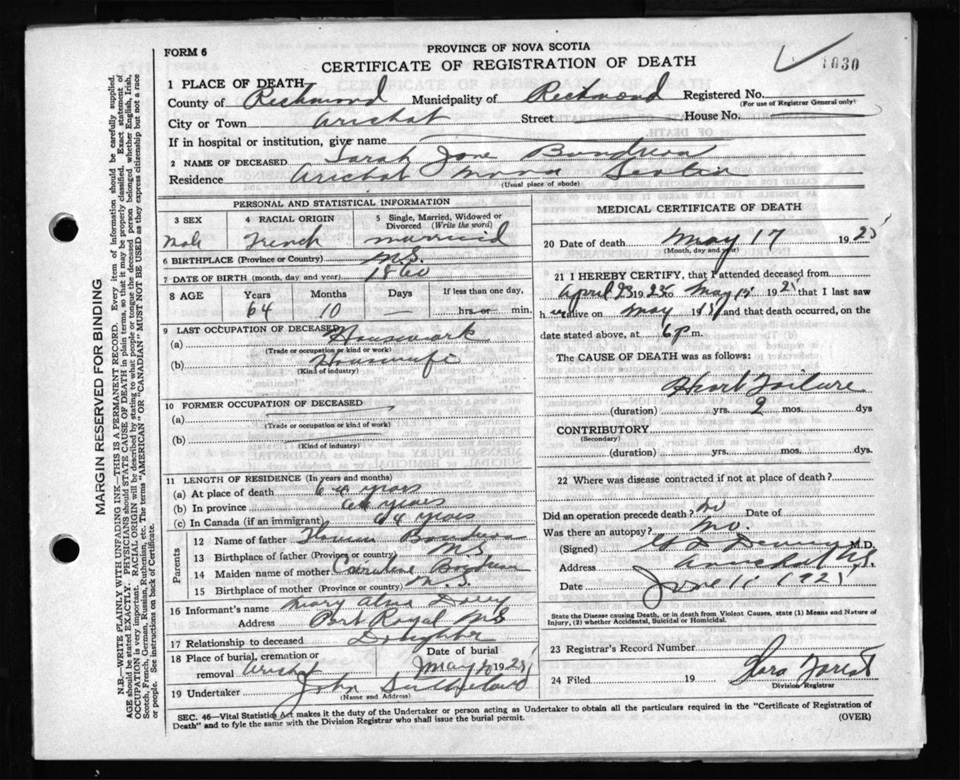 FORM 6
PROVINCE OF NOVA SCOTIA
CERTIFICATE OF REGISTRATION OF DEATH
1030
1 PLACE OF DEATH—
County of Richmond Municipality of Richmond Registered No.
(For use of Registrar General only)
City or Town Arichat Street House No.
If in hospital or institution, give name
2 NAME OF DECEASED Sarah Jane Boudreau
Residence Arichat Nova Scotia
(Usual place of abode)
PERSONAL AND STATISTICAL INFORMATION
3 SEX 4 RACIAL ORIGIN 5 Single, Married, Widowed or Divorced (Write the word)
Male French married
6 BIRTHPLACE (Province or Country) N.S.
7 DATE OF BIRTH (month, day and year) 1860
8 AGE Years Months Days If less than one day,
64 10 — hrs. or min.
9 LAST OCCUPATION OF DECEASED
(a) Housework
(Trade or occupation or kind of work)
(b) Housewife
(Kind of industry)
10 FORMER OCCUPATION OF DECEASED
(a)
(Trade or occupation or kind of work)
(b)
(Kind of industry)
11 LENGTH OF RESIDENCE (In years and months)
(a) At place of death 64 years
(b) In province 64 years
(c) In Canada (if an immigrant) 64 years
Parents
12 Name of father Boudreau
13 Birthplace of father (Province or country) N.S.
14 Maiden name of mother Caroline Boudreau
15 Birthplace of mother (Province or country) N.S.
16 Informant's name Mary
Address Port Royal N.S.
17 Relationship to deceased Daughter
18 Place of burial, cremation or removal Arichat
Date of burial May 1925
19 Undertaker John
(Name and Address)
MEDICAL CERTIFICATE OF DEATH
20 Date of death May 17 1925
(Month, day and year)
21 I HEREBY CERTIFY, that I attended deceased from
April 23 1925 to May 15 1925 that I last saw
h er alive on May 15 and that death occurred, on the
date stated above, at 6 p m.
The CAUSE OF DEATH was as follows:
Heart Failure
(duration) yrs. 2 mos. dys
CONTRIBUTORY
(Secondary)
(duration) yrs. mos. dys.
22 Where was disease contracted if not at place of death?
Did an operation precede death? No
Was there an autopsy? No.
(Signed) M.D.
Address Arichat N.S.
Date June 11 1925
State the Disease causing Death, or in death from Violent Causes, state (1) Means and Nature of
Injury, (2) whether Accidental, Suicidal or Homicidal.
23 Registrar's Record Number
24 Filed 19
Division Registrar
SEC. 46—Vital Statistics Act makes it the duty of the Undertaker or person acting as Undertaker to obtain all the particulars required in the "Certificate of Registration of
Death" and to fyle the same with the Division Registrar who shall issue the burial permit.
(OVER)
MARGIN RESERVED FOR BINDING
N.B.—WRITE PLAINLY WITH UNFADING INK—THIS IS A PERMANENT RECORD. Every item of information should be carefully supplied.
AGE should be stated EXACTLY. PHYSICIANS should STATE CAUSE OF DEATH in plain terms, so that it may be properly classified. Exact statement of
OCCUPATION is very important. RACIAL ORIGIN will be described by stating to what people or tongue the deceased person belonged whether English, Irish,
Scotch, French, German, Russian, Ruthenian, etc. The terms "AMERICAN" OR "CANADIAN" MUST NOT BE USED as they express citizenship but not a race
or people. See instructions on back of Certificate.